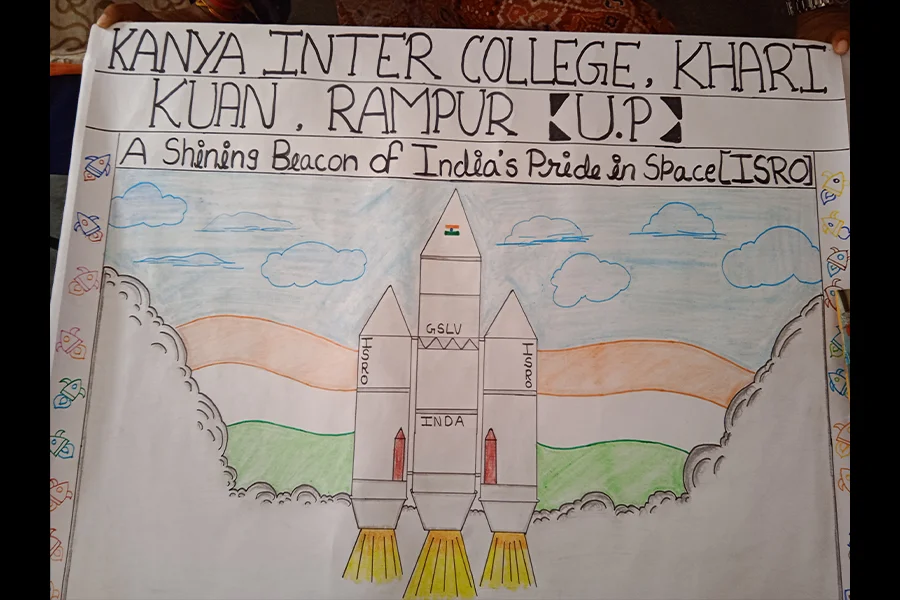 KANYA INTER COLLEGE, KHARI
KUAN, RAMPUR [U.P]
A Shining Beacon of India's Pride in Space[ISRO]
GSLV
ISRO
ISRO
INDA